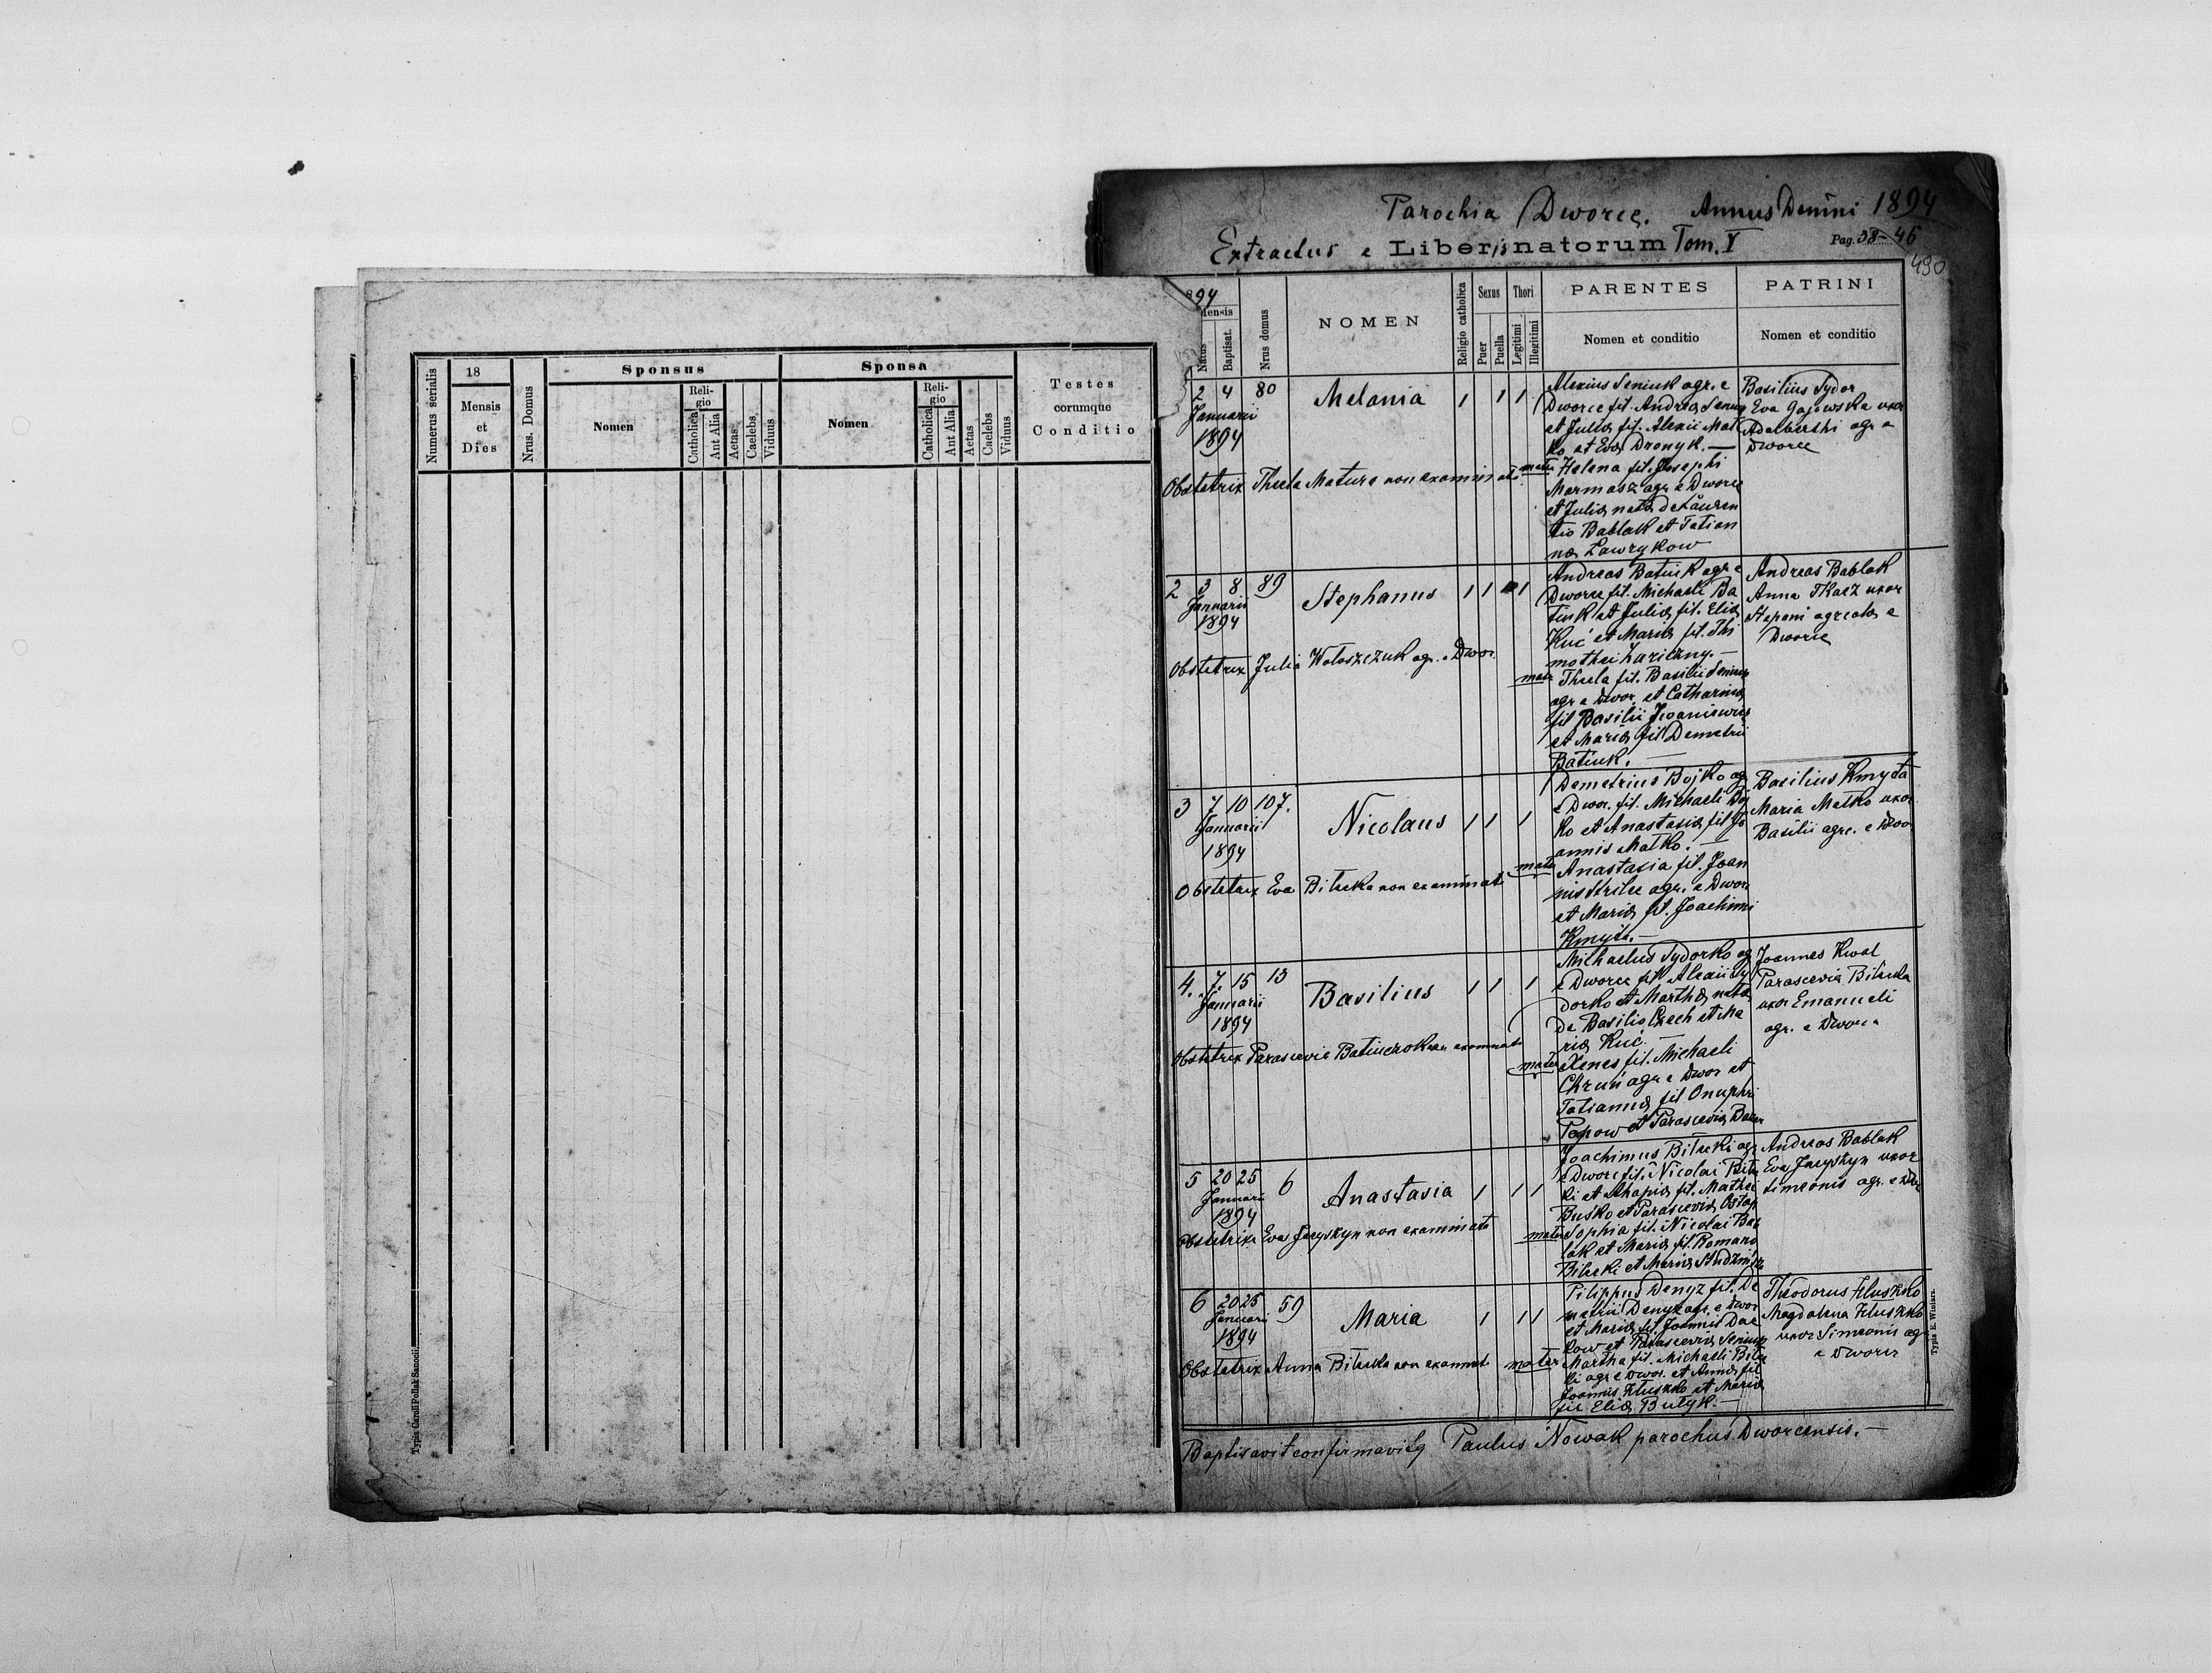 Numerus serialis
18
Mensis
et
Dies
Nrus. Domus
Sponsus
Nomen
Reli-
gio
Catholica
Aut Alia
Aetas
Caelebs
Viduus
Sponsa
Nomen
Reli-
gio
Catholica
Aut Alia
Aetas
Caelebs
Viduus
Testes
corumque
Conditio
Typis Caroli Pollak Sanocii.
Parochia Dworce. Annus Domini 1894
Extractus e Libris natorum Tom. V
Pag. 38-46
490
894
Mensis
Natus
Baptisat.
Nrus domus
NOMEN
Religio catholica
Sexus
Puer
Puella
Thori
Legitimi
Illegitimi
PARENTES
Nomen et conditio
PATRINI
Nomen et conditio
2 4 80 Melania 1 1 1
Januarii
1894
Alexius Seniuk agr. e
Dworce fil. Andreæ Seniuk
et Juliæ fil. Alexii Mat
ko et Evæ Dronyk. —
mater Helena fil. Josephi
Marmasz agr. e Dworce
et Juliæ nata de Lauren
tio Bablak et Tatian
næ Lawrykow
Basilius Sydor
Eva Gajewska uxor
Adalberthi agr. e
Dworce
Obstetrix Thecla Matura non examinata
2 3 8 89 Stephanus 1 1 1
Januarii
1894
Andreas Batiuk agr. e
Dworce fil. Michaeli Ba
tiuk et Juliæ fil. Eliæ
Kuć et Mariæ fil. Thi
mothei Lariczny. —
mater Thecla fil. Basilii Seniuk
agr. e Dwor. et Catharinæ
fil Basilii Iwaniewicz
et Mariæ fil Demetrii
Batiuk. —
Andreas Bablak
Anna Tkacz uxor
Stepani agricola e
Dworce
Obstetrix Julia Wołoszczuk agr. e Dwor.
3 7 10 107. Nicolaus 1 1 1
Januarii
1894
Demetrius Bojko agr
e Dwor. fil. Michaeli Boj
ko et Anastasiæ fil Jo
annis Matko. —
mater Anastasia fil. Joan
nis Strilec agr. e Dwor
et Mariæ fil. Joachimi
Kmyta. —
Basilius Kmyta
Maria Matko uxor
Basilii agr. e Dwor
Obstetrix Eva Bilecka non examinata
4. 7. 15 13 Basilius 1 1 1
Januarii
1894
Michaelus Sydorko agr
e Dworce fil. Alexii Sy
dorko et Marthæ nata
de Basilio Czech et Ma
riæ Kuć
mater Xenes fil. Michaeli
Chruń agr. e Dwor et
Tatiannæ fil Onuphri
Popow et Parasceviæ
Joannes Kwal
Parascevia Bilecka
uxor Emanueli
agr. e Dworce
Obstetrix Parascevia non examinata
5 20 25 6 Anastasia 1 1 1
Januari
1894
Joachimus Bilecki agr.
e Dworce fil. Nicolai Bile
ki et Ahapiæ fil. Mathei
Busko et Parasceviæ Ostap
mater Sophia fil. Nicolai Bab
lak et Mariæ fil. Romano
Bilecki et Mariæ
Andreas Bablak
Eva Jacyszyn uxor
Simeonis agr. e Dwor
Obstetrix Eva Jacyszyn non examinata
6 20 25 59 Maria 1 1 1
Januari
1894
Pilippus Denyz fil. De
metrii Denyz agr. e Dwor
et Mariæ fil Joannis Dac
kow et Parasceviæ Seniuk
mater Martha fil. Michaeli Bile
ki agr. e Dwor. et Annæ fil
Joannis Hłuszko et Mariæ
fil Eliæ Butyk. —
Theodorus Hłuszko
Magdalena Hłuszko
uxor Simeonis agr
e Dworce
Obstetrix Anna Bilecka non examinat
Typis E. Winiarz.
Baptisavit confirmavitq Paulus Nowak parochus Dworcensis. —